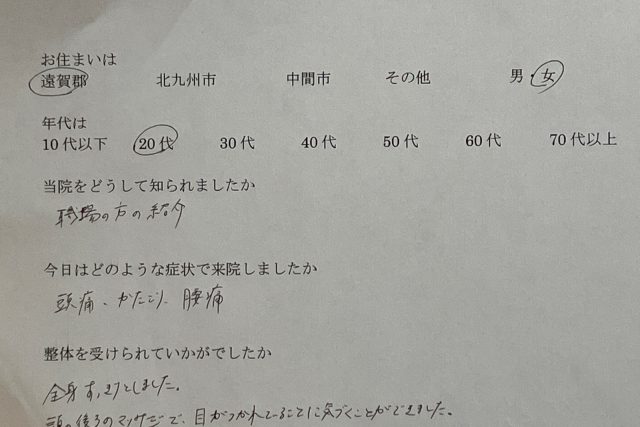 お住まいは
遠賀郡 北九州市 中間市 その他 男・女
年代は
10代以下 20代 30代 40代 50代 60代 70代以上
当院をどうして知られましたか
職場の方の紹介
今日はどのような症状で来院しましたか
頭痛、かたこり、腰痛
整体を受けられていかがでしたか
全身すっきりとしました。
頭の後ろのマッサージで、目がつかれていることに気づくことができました。